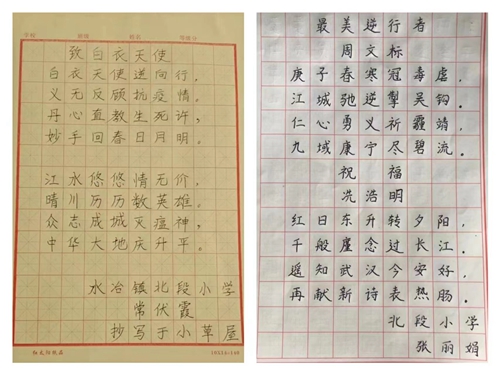 致白衣天使
白衣天使逆向行，
义无反顾抗疫情。
丹心直教生死许，
妙手回春日月明。
江水悠悠情无价，
晴川历历数英雄。
众志成城灭瘟神，
中华大地庆升平。
水冶镇北段小学
常伏霞
抄写于小草屋
最美逆行者
周文标
庚子春寒冠毒虐，
江城驰逆掣吴钩。
仁心勇义祈霾靖，
九域康宁尽碧流。
祝福
冼浩明
红日东升转夕阳，
千般崖念过长江。
遥知武汉今安好，
再献新诗表热肠。
北段小学
张丽娟